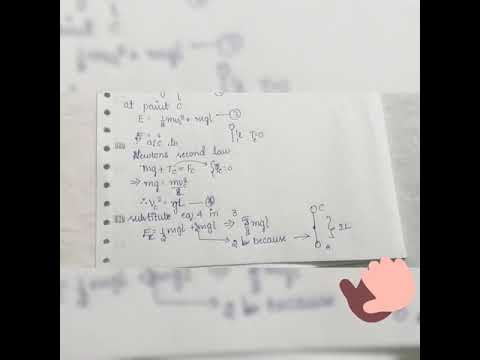 at point C
E = ½mv_c² + mgl — ③
T_c = 0
a/c to
Newtons second law
mg + T_c = F_c {T_c = 0
⇒ mg = mv_c²/L
∴ v_c² = gL — ④
substitute eq 4 in 3
E = ½mgl + 2mgl ⇒ 5/2 mgl
2 L because → C
2L
A